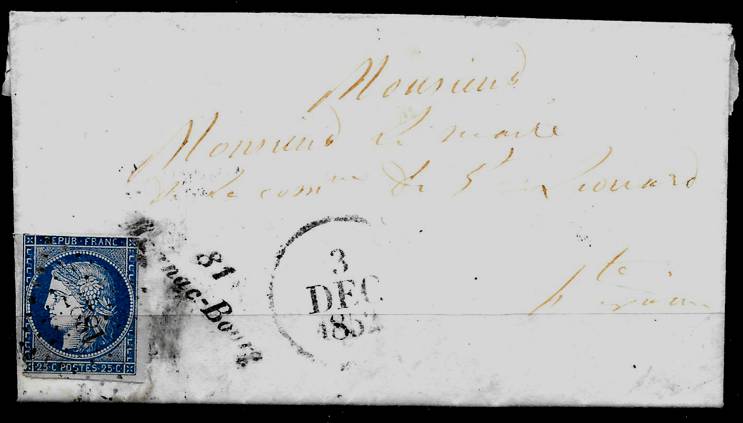 Monsieur
Monsieur le maire
de la comⁿᵉ de Sᵗ Léonard
hᵗᵉ
REPUB·FRANC·
25·C·POSTES·25·C
81
-Bourg
3
DEC.
1852